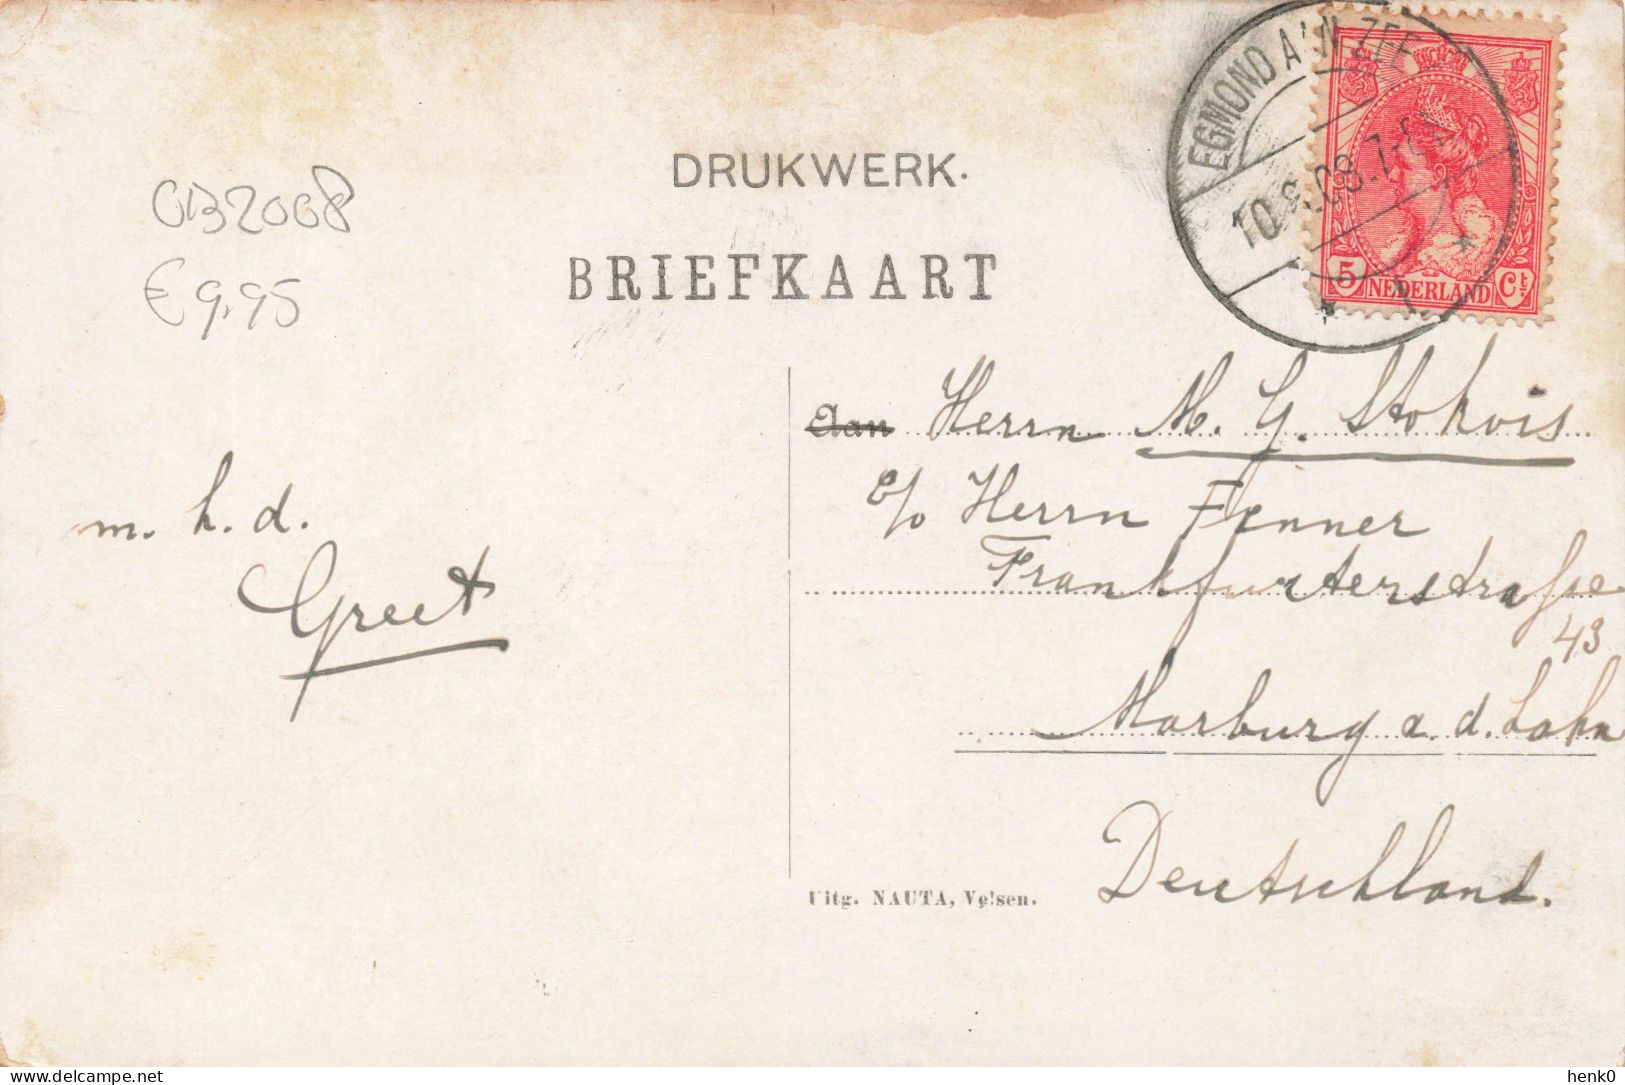 EGMOND A/N ZEE
10.8.08.7-8V
5 NEDERLAND Ct
DRUKWERK.
BRIEFKAART
OB2008
€ 9,95
Aan Herrn M. G. Stokvis
c/o Herrn Fenner
Frankfurterstraße
43
Marburg a. d. Lahn
Deutschland.
m. h. d.
Greet
Uitg. NAUTA, Velsen.
delcampe.net
henk0